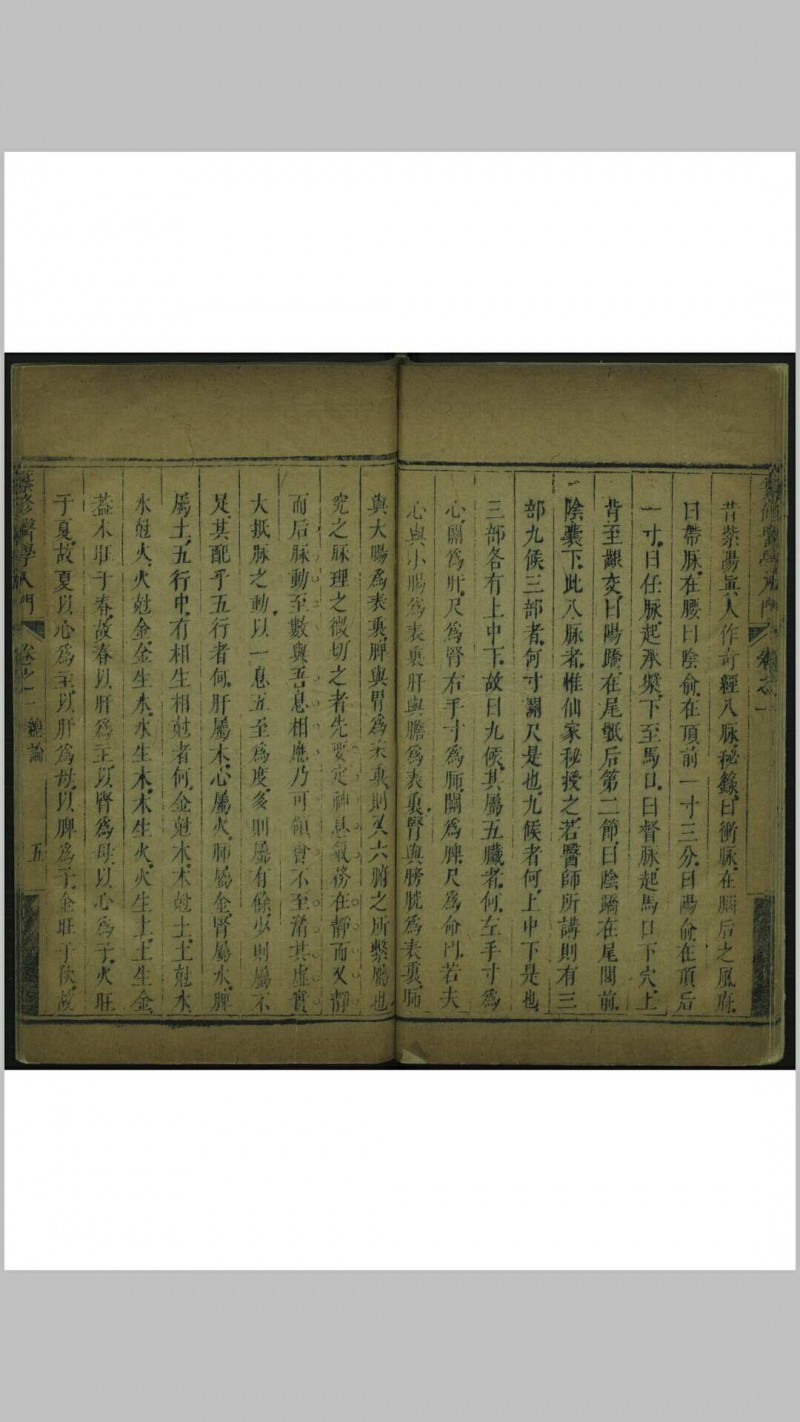 昔紫陽眞人作奇經八脉秘錄曰衝脉在腦后之風府
曰帶脉在腰曰陰俞在頂前一寸三分曰陽俞在頂后
一寸曰任脉起承漿下至馬口曰督脉起馬口下穴上
背至齦交曰陽蹻在尾骶后第二節曰陰蹻在尾閭前
陰囊下此八脉者惟仙家秘授之若醫師所講則有三
部九候三部者何寸關尺是也九候者何上中下是也
三部各有上中下故曰九候其屬五臟者何左手寸爲
心關爲肝尺爲腎右手寸爲肺關爲脾尺爲命門若夫
心與小腸爲表裏肝與膽爲表裏腎與膀胱爲表裏肺
與大腸爲表裏脾與胃爲表裏則又六腑之所繫屬也
究之脉理之微切之者先要定神息氣務在靜而又靜
而后脉動至數與吾息相應乃可領會不至淆其虛實
大抵脉之動以一息五至爲度多則屬有餘少則屬不
足其配乎五行者何肝屬木心屬火肺屬金腎屬水脾
屬土五行中有相生相尅者何金尅木木尅土土尅水
水尅火火尅金金生水水生木木生火火生土土生金
葢木旺于春故春以肝爲主以腎爲母以心爲子火旺
于夏故夏以心爲主以肝爲母以脾爲子金旺于秋故
醫學入門 卷之一 總論 五